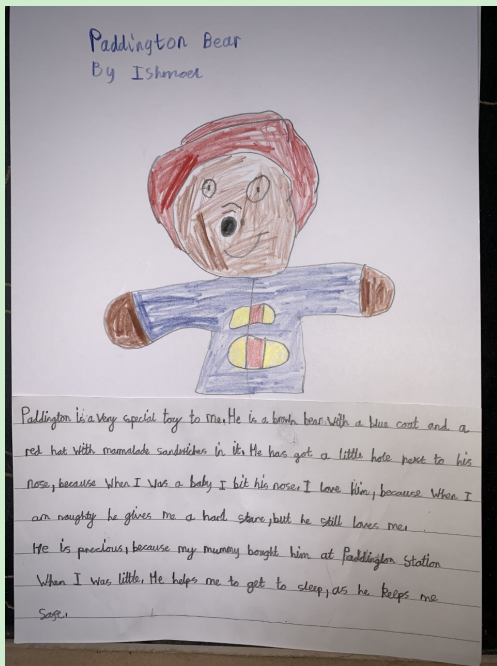 Paddington Bear
By Ishmael
Paddington is a very special toy to me. He is a brown bear with a blue coat and a
red hat with marmalade sandwiches in it. He has got a little hole next to his
nose, because when I was a baby I bit his nose. I love him, because when I
am naughty he gives me a hard stare, but he still loves me.
He is precious, because my mummy bought him at Paddington Station
when I was little. He helps me to get to sleep, as he keeps me
safe.